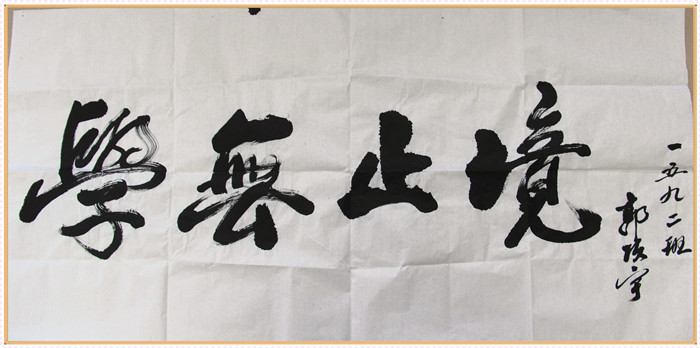 學無止境
一五九二班
郭
宇